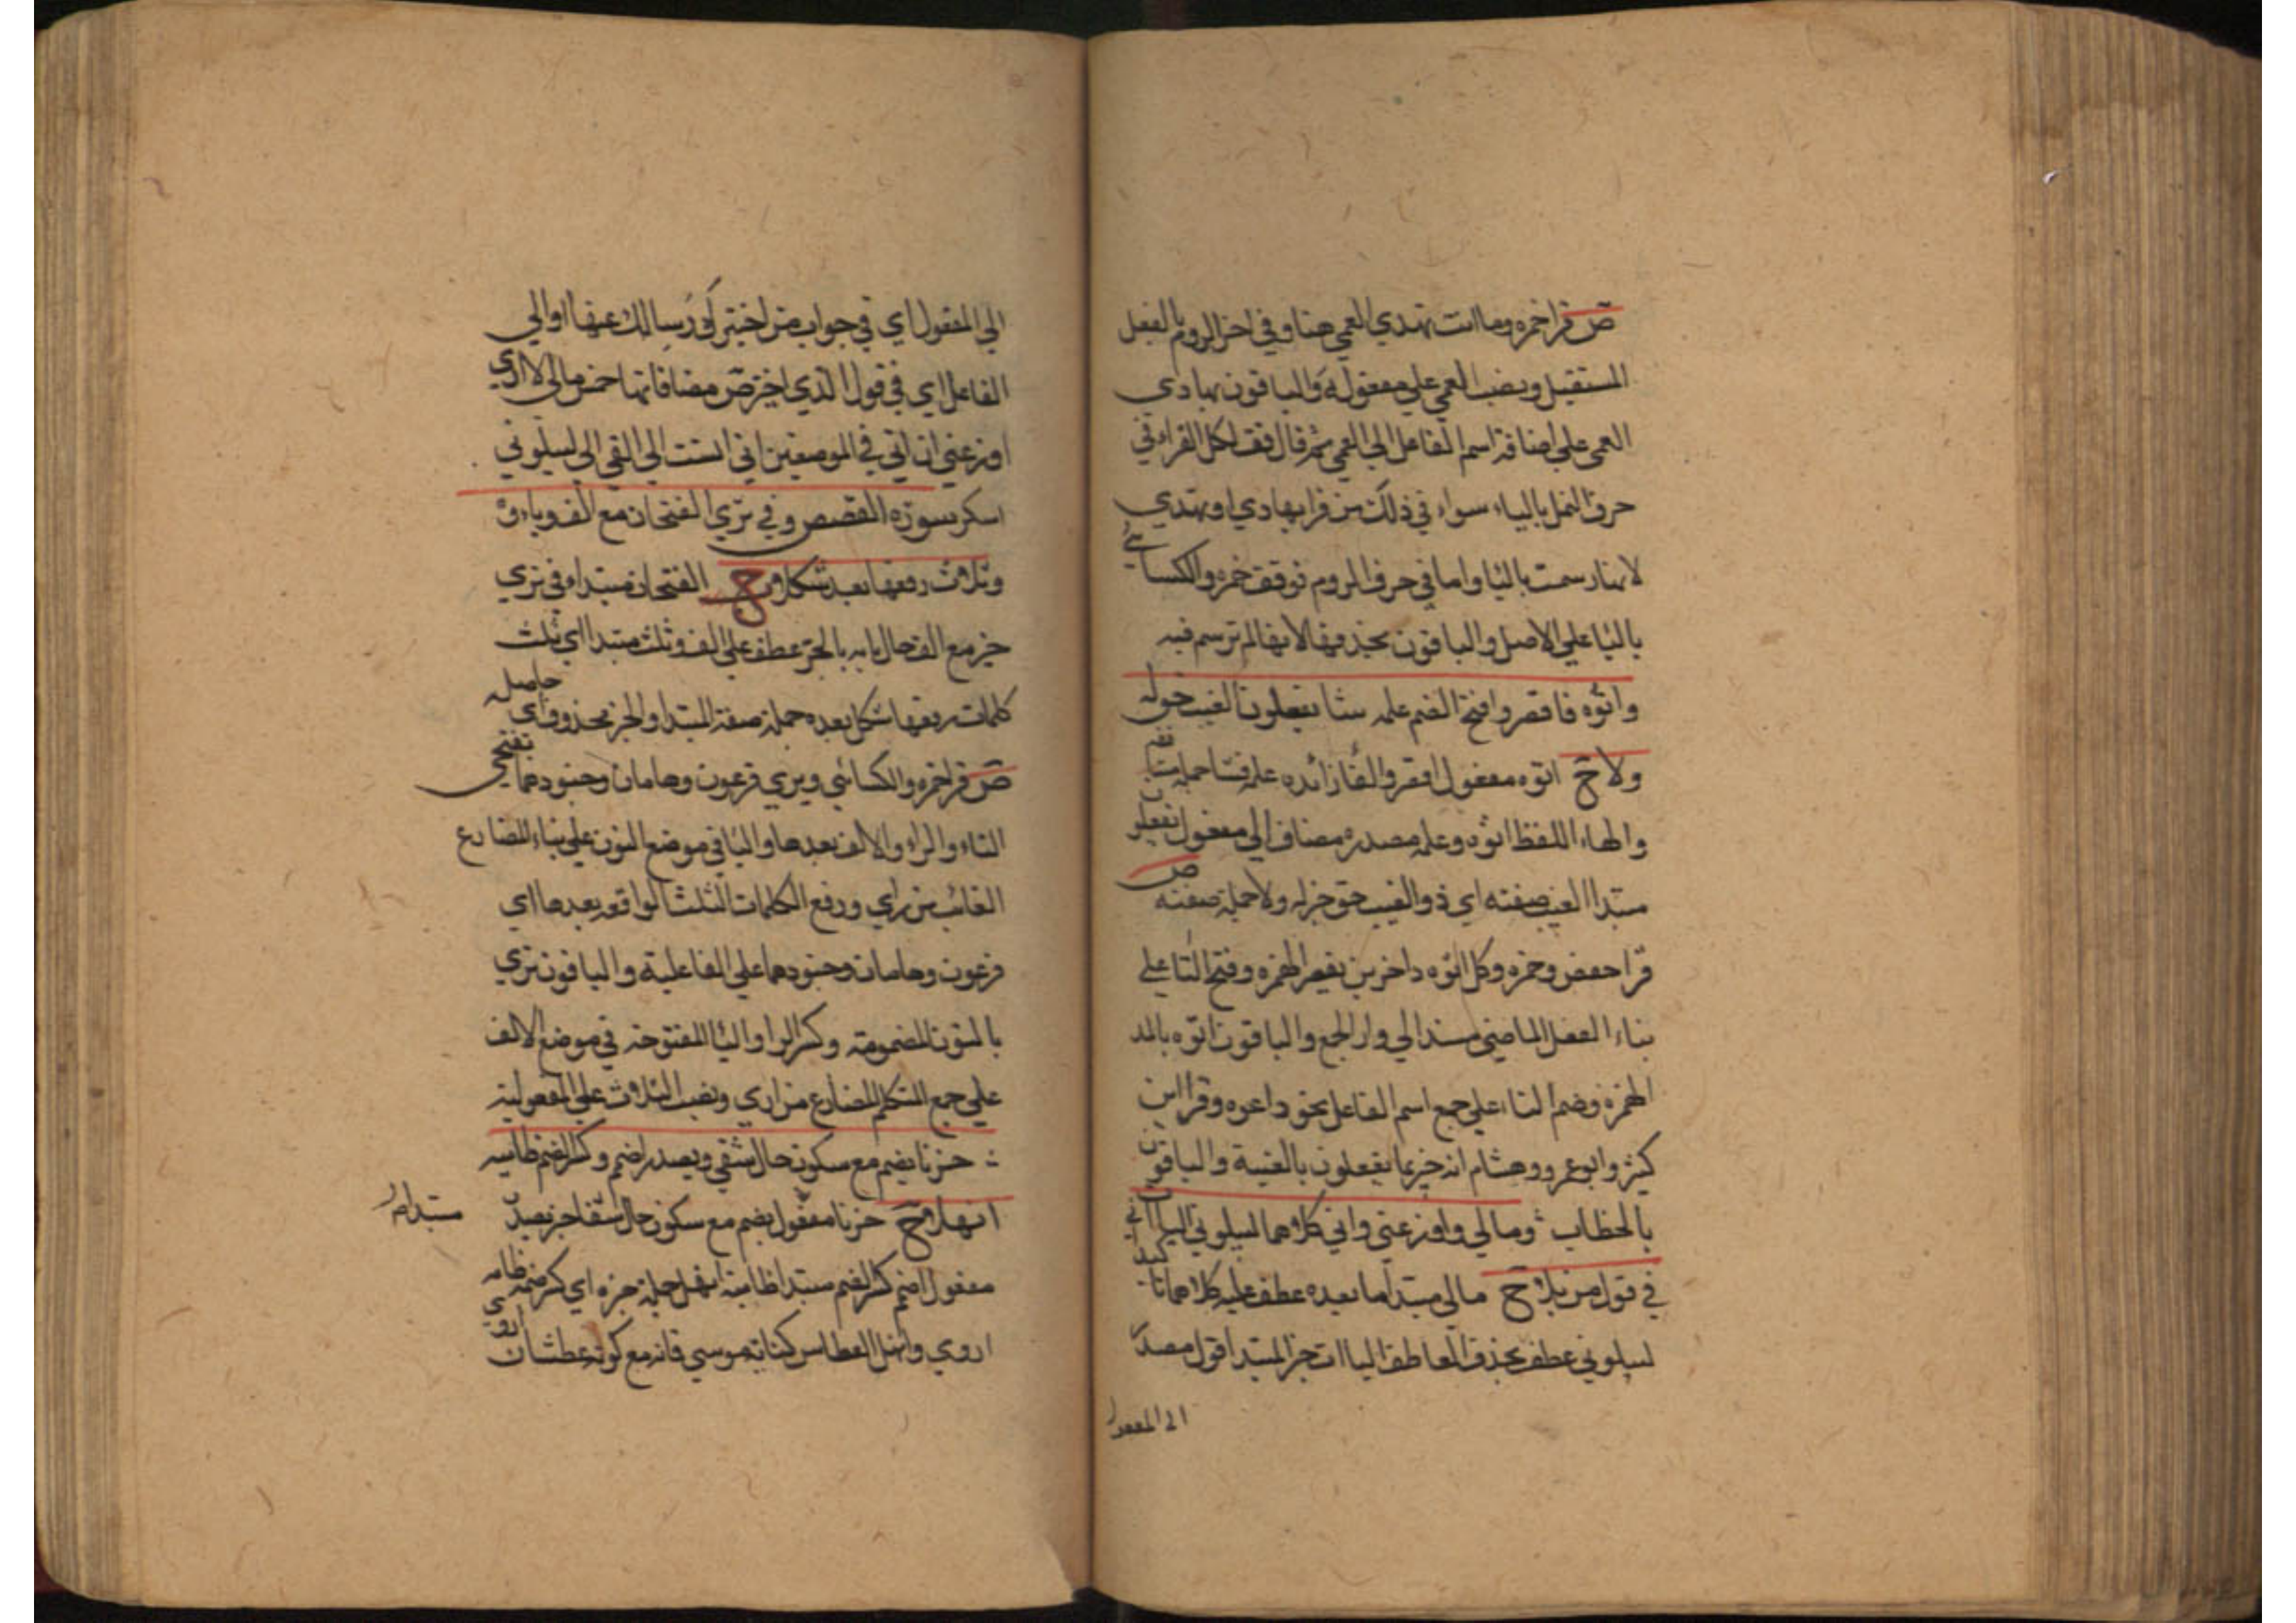 ص قرا حمزه وما انت تهدي العمي هنا وفي اخر الروم بالفعل
المستقبل ونصب العمي علي مفعوله والباقون بهادي
العمي علي اضافة اسم الفاعل الي العمي ثم قال فقف لكل القراء في
حرف النمل بالياء سواء في ذلك من قرا بهادي او تهدي
لانها رسمت باليا واما في حرف الروم فوقف حمزه والكسائي
باليا علي الاصل والباقون بحذفها لانها لم ترسم فيه
واتوه فاقصر وافتح الضم علمه فشا تفعلون الغيب حق له
ولا ح اتوه مفعول اقصر والفا زائده علمه فشا جملة مستانفة
والهاء للفظ اتوه وعلمه مصدر مضاف الي مفعول تفعلون
مبتدا الغيب صفته اي ذو الغيب حق خبر له ولا جملة صفته ص
قرا حفص وحمزه وكل اتوه داخرين بقصر الهمزه وفتح التا علي
بناء الفعل الماضي مسند الي واو الجمع والباقون اتوه بالمد
الهمزه وضم التاء علي جمع اسم الفاعل نحو داعوه وقرا ابن
كثير وابو عمرو وهشام انه خبير بما يفعلون بالغيبة والباقون
بالخطاب ومالي واوزعني واني كلاهما ليبلوني اليا ات
في قول من بلا ح مالي مبتدا ما بعده عطف عليه كلاهما تاكيد
ليبلوني عطف بحذف العاطف اليا ات خبر المبتدا قول مصدر
الي المفعول
الي المفعول اي في جواب من اختبرك وسالك عنها او الي
الفاعل اي في قول الذي اختبر ص مضافاتها خمس مالي لا اري
اوزعني ان اني في الموضعين اني انست اني القي الي ليبلوني
اسكر سورة القصص وفي نري الفتحان مع الف وياءه
وثلاث رفعها بعد شكلا ح الفتحان مبتدا وفي نري
خبر مع الف حال يايه بالجر عطف علي الف وثلث مبتدا اي ثلث
كلمات رفعها شكل بعده جملة صفة المبتدا والخبر محذوف اي حاصله
ص قرا حمزه والكسائي ويري فرعون وهامان وجنودهما بفتحي
التاء والراء والالف بعدها واليا في موضع النون علي بناء المضارع
الغائب من راي ورفع الكلمات الثلث الواقعه بعدها اي
فرعون وهامان وجنودهما علي الفاعلية والباقون نري
بالنون المضمومة وكسر الراء واليا المفتوحه في موضع الالف
علي جمع المتكلم المضارع من اري ونصب الثلاث علي المفعولية
وحزنا بضم مع سكون حال شفي ويصدر اضمم وكسر الضم ظاميه
انهلا ح حزنا مفعول بضم مع سكون حال شفا خبر يصدر مبتدا
مفعول اضمم كسر الضم مبتدا ظاميه انهل جملة خبره اي كسر ضمه ظاميه
اروي وانهل العطاش كناية موسي فانه مع كونه عطشان اروي